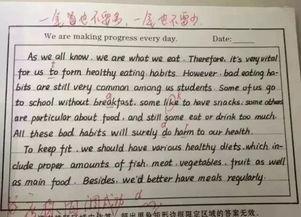 一会写也不需多,一会也不需少.
We are making progress every day. Date:
As we all know, we are what we eat. Therefore, it's very vital
for us to form healthy eating habits. However, bad eating ha-
bits are still very common among us students. Some of us go
to school without breakfast, some like to have snacks, some others
are particular about food, and still some eat or drink too much.
All these bad habits will surely do harm to our health.
To keep fit, we should have various healthy diets, which in-
clude proper amounts of fish, meat, vegetables, fruit as well
as main food. Besides, we'd better have meals regularly.